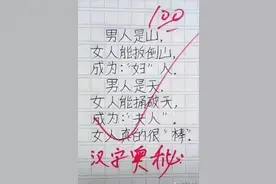 100
男人是山,
女人能扳倒山,
成为:"妇"人.
男人是天.
女人能捅破天,
成为:"夫人".
女人真的很"棒".
汉字奥秘